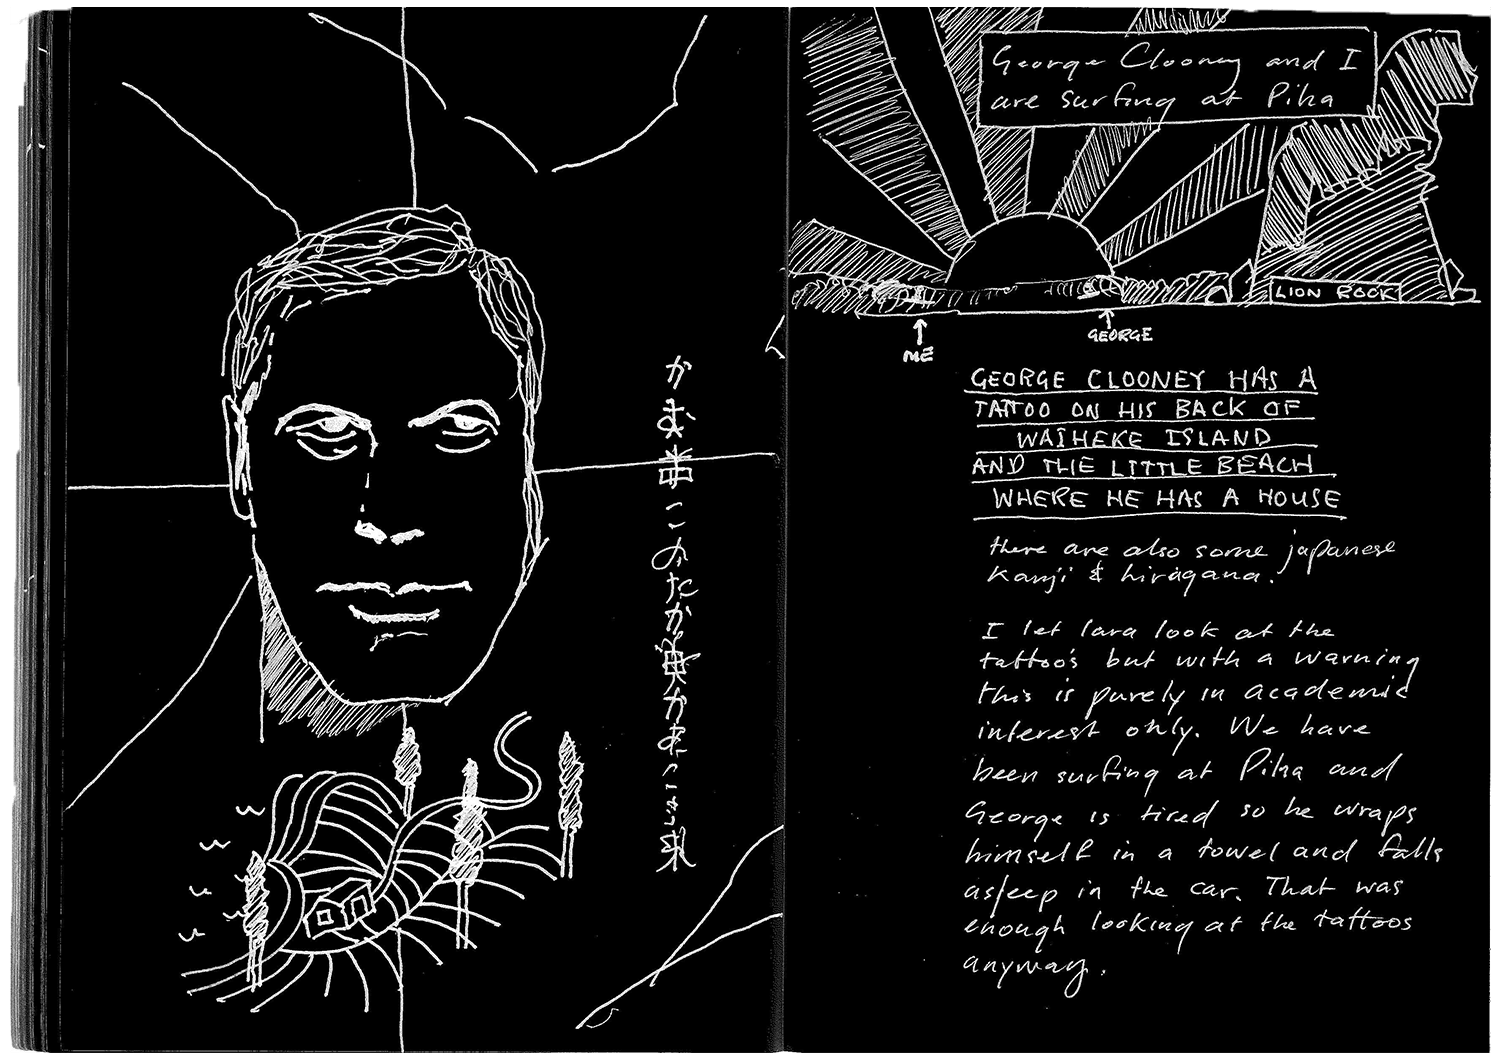 George Clooney and I
are surfing at Piha
LION ROCK
ME
GEORGE
GEORGE CLOONEY HAS A
TATTOO ON HIS BACK OF
WAIHEKE ISLAND
AND THE LITTLE BEACH
WHERE HE HAS A HOUSE
there are also some japanese
kanji & hiragana.
I let lara look at the
tattoo's but with a warning
this is purely in academic
interest only. We have
been surfing at Piha and
George is tired so he wraps
himself in a towel and falls
asleep in the car. That was
enough looking at the tattoos
anyway.